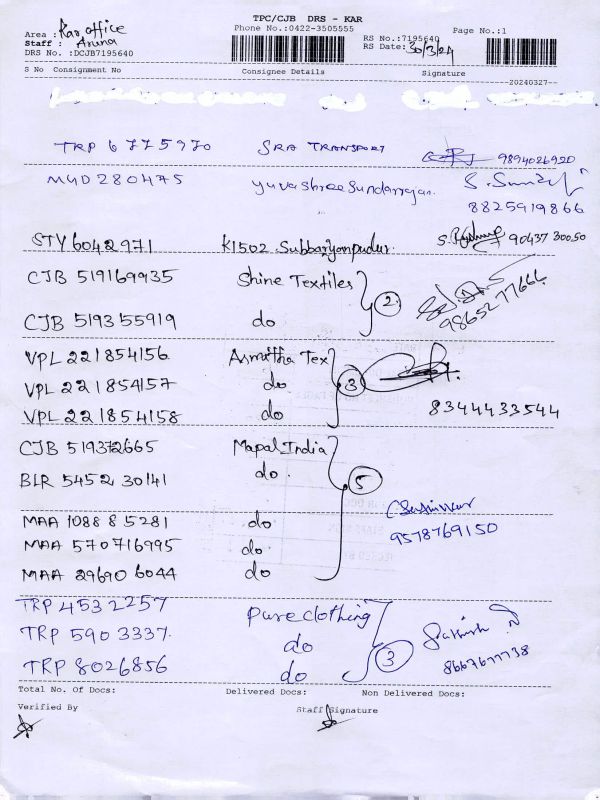 TPC/CJB DRS - KAR
Area : Kar office Phone No.:0422-3505555 RS No.:7195640 Page No.:1
Staff : Aruna RS Date: 30/3/24
DRS No. :DCJB7195640
S No Consignment No Consignee Details Signature
20240327
TRP 6775970 SRA TRANSPORT 9894026920
MYD 280475 yuvashreesundarrajan. S.
8825919866
STY 6042971 K1502 Subbaryanpudur. S. 90437 30050
CJB 519169935 Shine Textiles 2
CJB 519355919 do 9865277666
VPL 221854156 Asmitha Tex
VPL 221854157 do 3
VPL 221854158 do 8344433544
CJB 519372665 Mapal India
BLR 5452 30141 do 5
MAA 1088 85281 do
MAA 570716995 do 9578769150
MAA 29690 6044 do
TRP 4532257 pure clothing
TRP 590 3337. do 3
TRP 8026856 do 8667677738
Total No. Of Docs: Delivered Docs: Non Delivered Docs:
Verified By Staff Signature